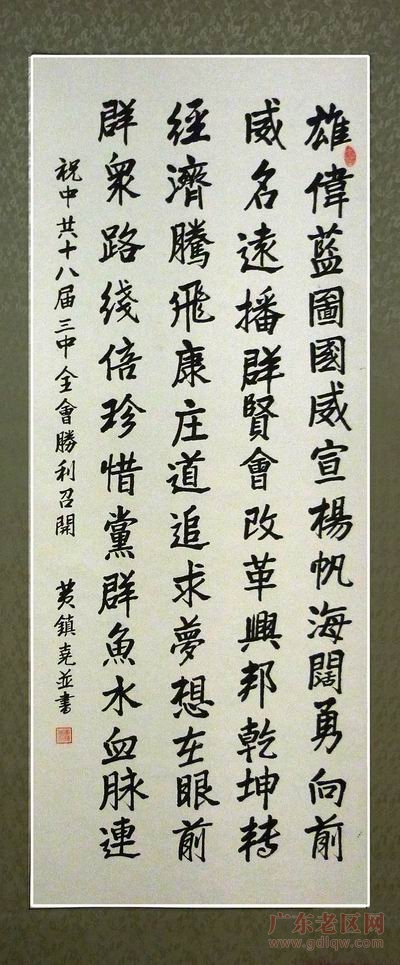 雄偉藍圖國威宣楊帆海闊勇向前
威名遠播群賢會改革興邦乾坤轉
經濟騰飛康庄道追求夢想在眼前
群衆路綫倍珍惜黨群魚水血脉連
祝中共十八届三中全會勝利召開 黄鎮堯並書
广东老区网
www.gdlqw.com